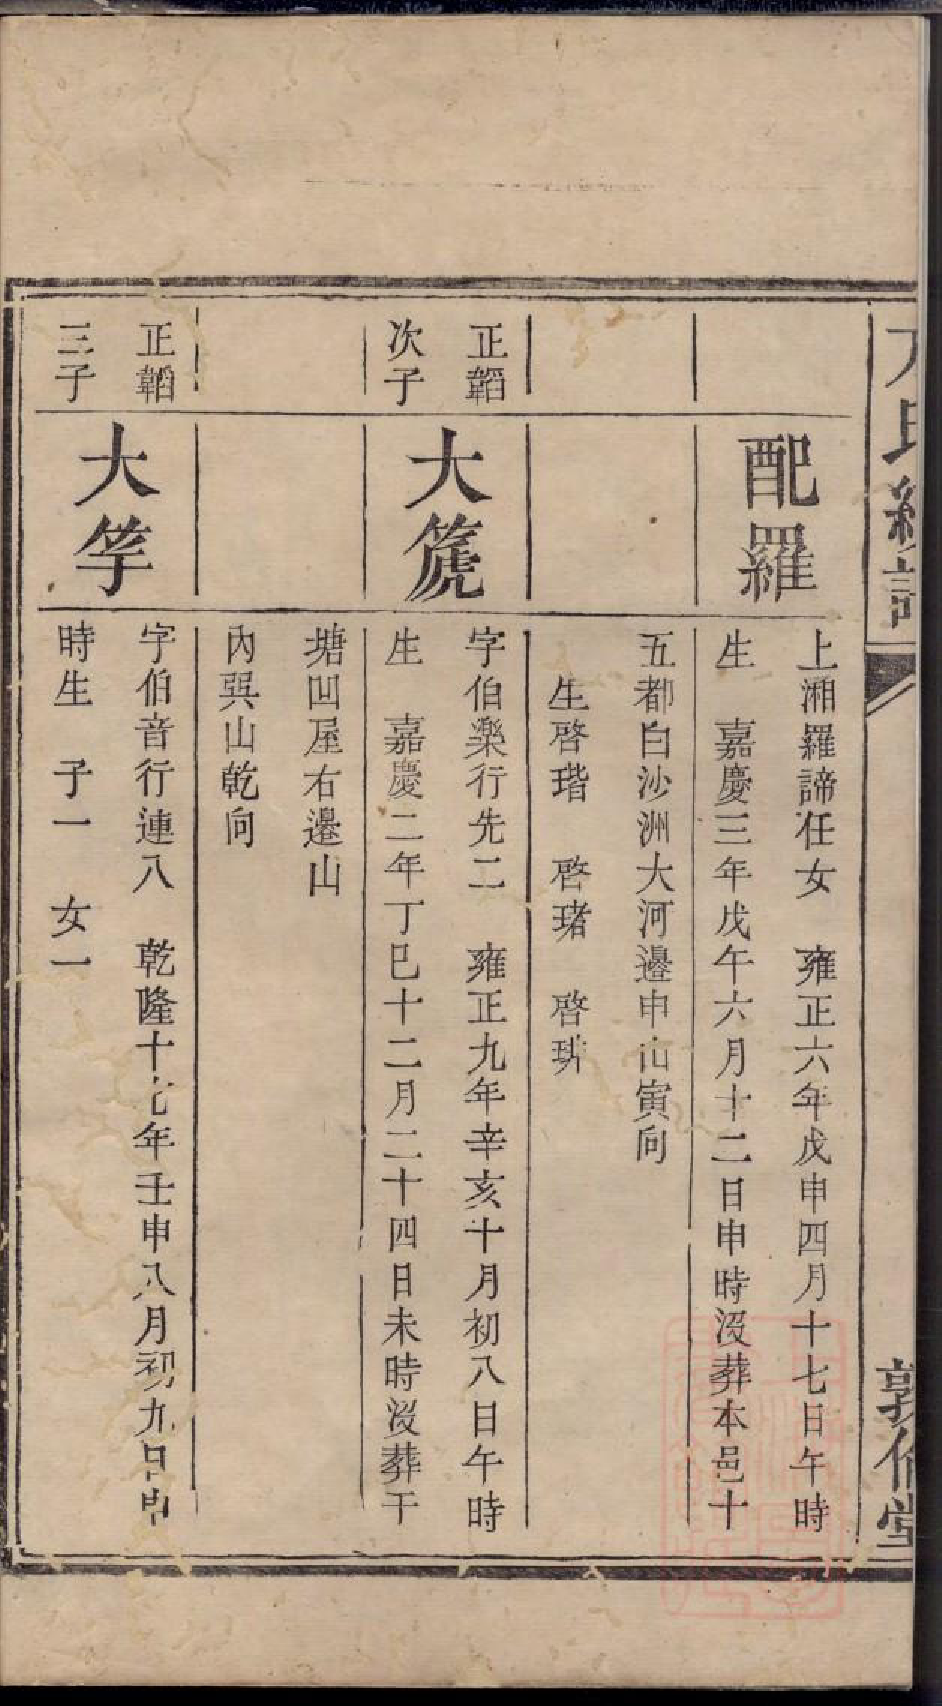 配羅
上湘羅諦任女　雍正六年戊申四月十七日午時
生　嘉慶三年戊午六月十二日申時沒葬本邑十
五都白沙洲大河邊申山寅向
生啓瑎　啓𤦪　啓
正韜
次子
大箎
字伯樂行先二　雍正九年辛亥十月初八日午時
生　嘉慶二年丁巳十二月二十四日未時沒葬干
塘凹屋右邊山
內巽山乾向
正韜
三子
大竽
字伯音行連八　乾隆十七年壬申八月初九日申
時生　子一　女一